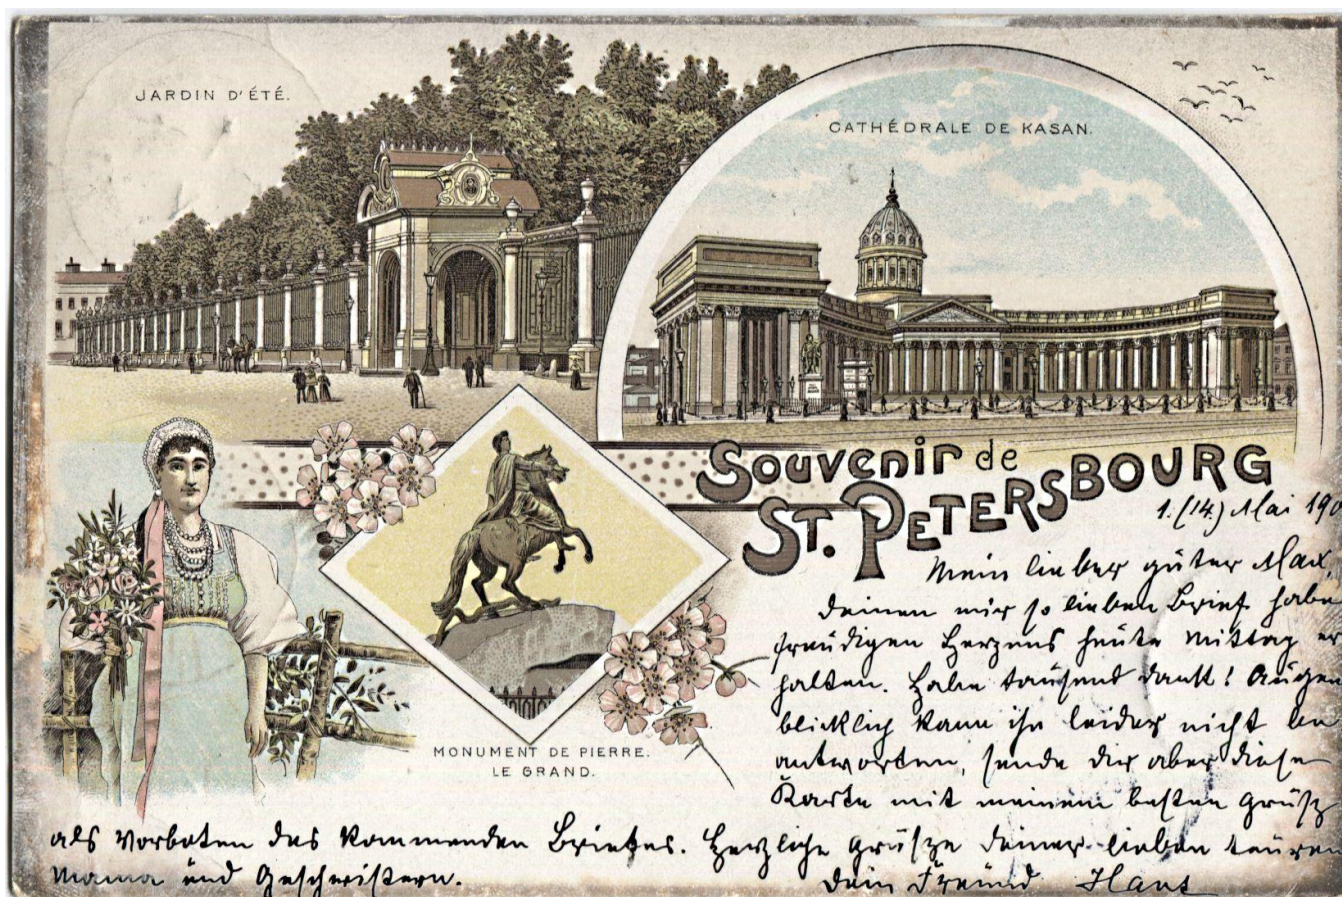 JARDIN D'ÉTÉ.
CATHÉDRALE DE KASAN.
Souvenir de
ST. PETERSBOURG
MONUMENT DE PIERRE.
LE GRAND.
1. (14.) Mai 190
Mein lieber guter Max,
deinen mir so lieben Brief habe
freudigen Herzens heute Mittag er
halten. Habe tausend Dank! Augen
blicklich kann ihn leider nicht be
antworten, sende dir aber diese
Karte mit meinem besten Gruß
als Vorboten des kommenden Briefes. Herzliche Grüße deiner lieben teuren
Mama und Geschwistern.
Dein Freund Hans